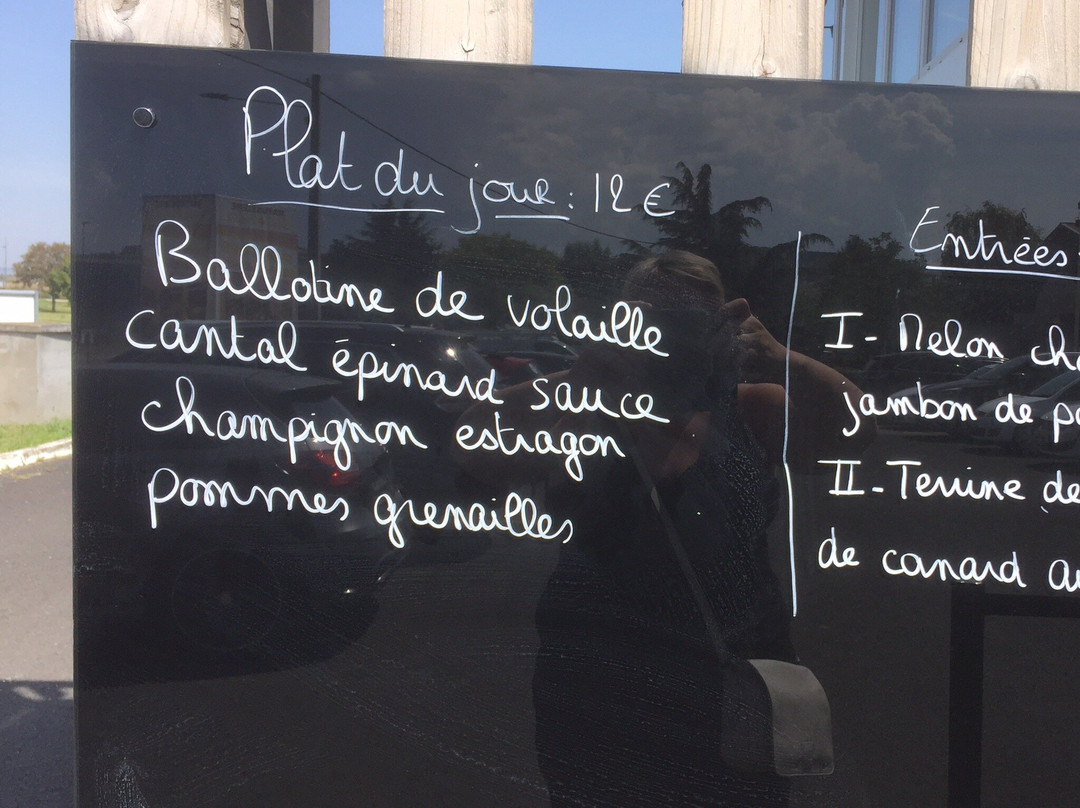 Plat du jour : 12 €
Ballotine de volaille
cantal épinard sauce
champignon estragon
pommes grenailles
Entrées
I - Melon
jambon de
II - Terrine de
de canard